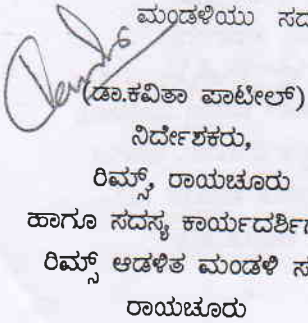 ಮಂಡಳಿಯು ಸದ
(ಡಾ.ಕವಿತಾ ಪಾಟೀಲ್)
ನಿರ್ದೇಶಕರು,
ರಿಮ್ಸ್, ರಾಯಚೂರು
ಹಾಗೂ ಸದಸ್ಯ ಕಾರ್ಯದರ್ಶಿ
ರಿಮ್ಸ್ ಆಡಳಿತ ಮಂಡಳಿ ಸ
ರಾಯಚೂರು